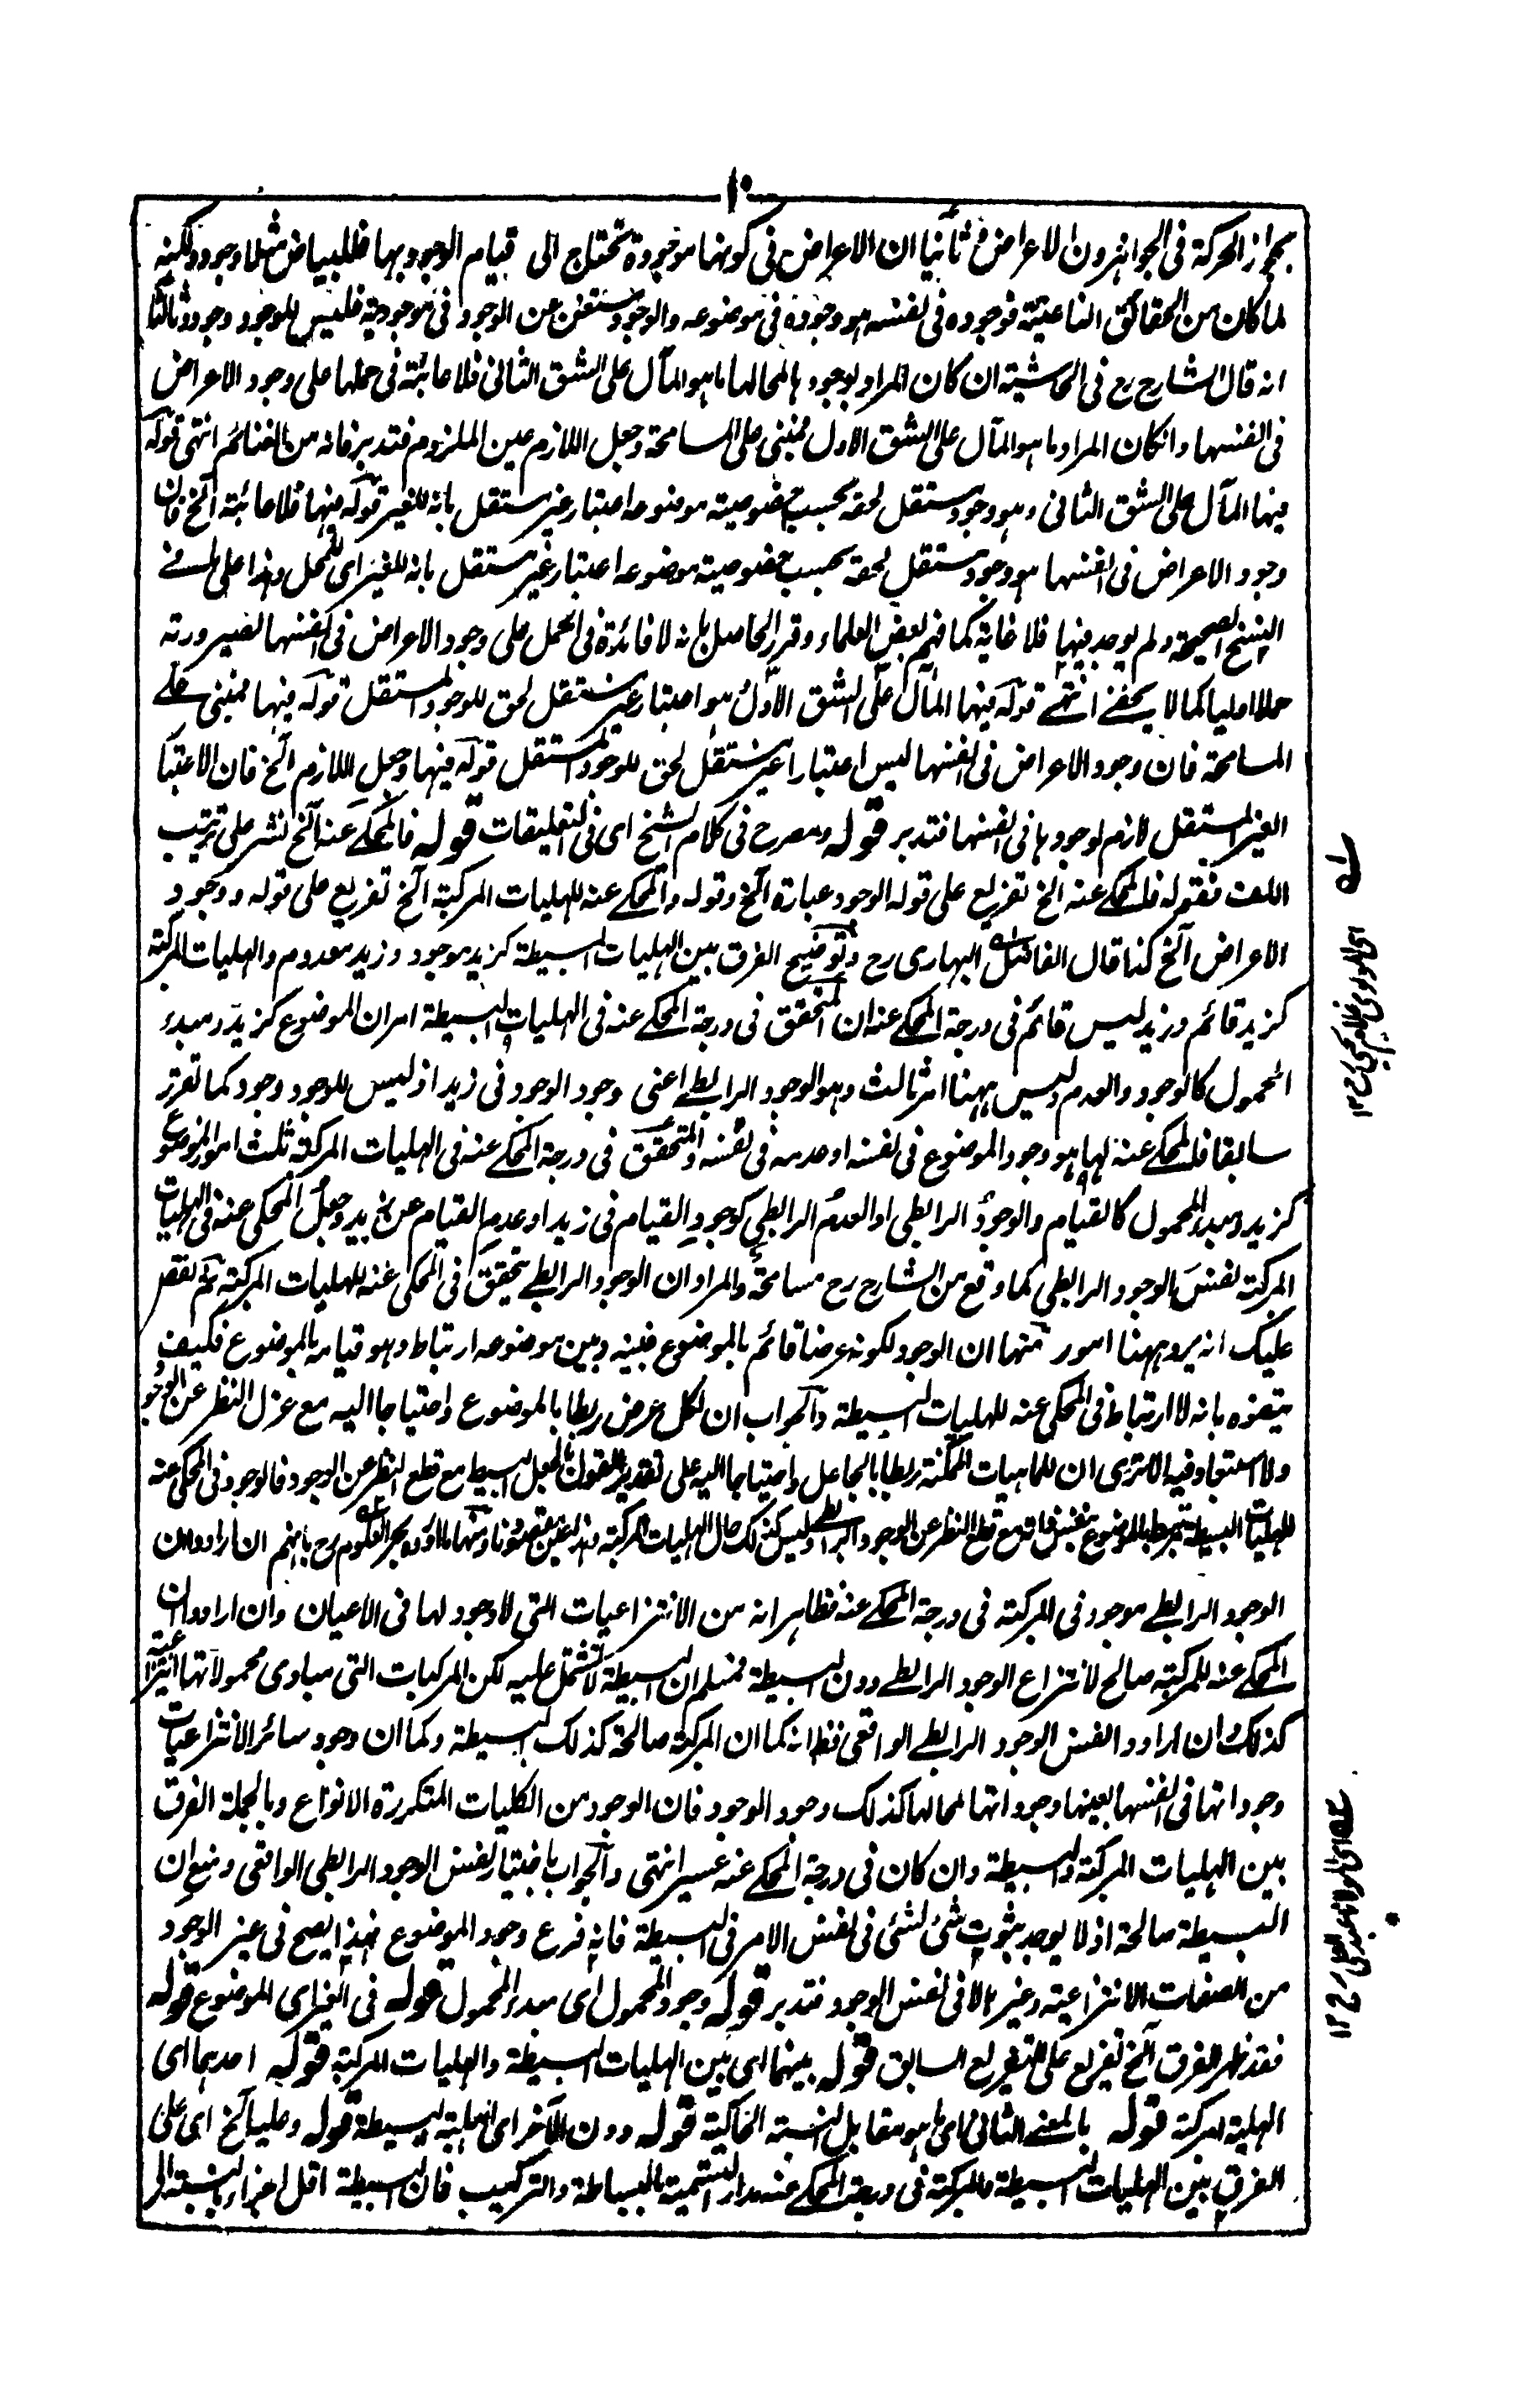 ١٠
بجواز الحركة فى الجواهر دون الاعراض وثانيا ان الاعراض فى كونها موجودة تحتاج الى قيام الوجود بها فللبياض مثلا وجود ولكنه
لما كان من الحقائق الناعتية فوجوده فى نفسه هو وجوده فى موضوعه والوجود مستغن عن الوجود فى موجوديته فليس للوجود وجود وثالثا
انه قال الشارح رح فى الحاشية ان كان المراد بوجودها لمحالها ما هو المآل على الشق الثانى فلا عائبة فى حملها على وجود الاعراض
فى انفسها وانكان المراد ما هو المآل على الشق الاول فمبنى على المسامحة وجعل اللازم عين الملزوم فتدبر فانه من الغنائم انتهى قوله
فيها المآل على الشق الثانى وهو وجود مستقل لحقه بحسب خصوصية موضوعه اعتبار غير مستقل بانه للغير قوله فيها فلا عائبة الخ فان
وجود الاعراض فى انفسها هو وجود مستقل لحقه بحسب خصوصية موضوعه اعتبار غير مستقل بانه للغير اى للمحل وهذا على ما فى
النسخ الصحيحة ولم يوجد فيها فلا غاية كما فهم بعض العلماء وقرر الحاصل بانه لا فائدة فى الحمل على وجود الاعراض فى انفسها لصيرورته
حملا اوليا كما لا يخفى انتهى قوله فيها المآل على الشق الاول هو اعتبار غير مستقل لحق للوجود المستقل قوله فيها فمبنى على
المسامحة فان وجود الاعراض فى انفسها ليس اعتبارا غير مستقل لحق للوجود المستقل قوله فيها وجعل اللازم الخ فان الاعتبار
الغير المستقل لازم لوجودها فى انفسها فتدبر قوله ومصرح فى كلام الشيخ اى فى التعليقات قوله فالمحكى عنه الخ نشر على ترتيب
اللف فقوله فالمحكى عنه الخ تفريع على قوله الوجود عبارة الخ وقوله والمحكى عنه للهليات المركبة الخ تفريع على قوله ووجود
الاعراض الخ كذا قال الفاضل البهارى رح وتوضيح الفرق بين الهليات البسيطة كزيد موجود وزيد معدوم والهليات المركبة
كزيد قائم وزيد ليس قائم فى درجة المحكى عنه ان المتحقق فى درجة المحكى عنه فى الهليات البسيطة امران الموضوع كزيد ومبدء
المحمول كالوجود والعدم وليس ههنا امر ثالث وهو الوجود الرابطى اعنى وجود الوجود فى زيد اذ ليس للوجود وجود كما تقرر
سابقا فالمحكى عنه لها هو وجود الموضوع فى نفسه او عدمه فى نفسه والمتحقق فى درجة المحكى عنه فى الهليات المركبة ثلث امور الموضوع
كزيد ومبدء المحمول كالقيام والوجود الرابطى او العدم الرابطى كوجود القيام فى زيد او عدم القيام عن زيد وجعل المحكى عنه فى الهليات
المركبة نفس الوجود الرابطى كما وقع من الشارح رح مسامحة والمراد ان الوجود الرابطى يتحقق فى المحكى عنه للهليات المركبة ثم نقص
عليك انه يرد ههنا امور منها ان الوجود لكونه عرضا قائم بالموضوع فبينه وبين موضوعه ارتباط وهو قيامه بالموضوع فكيف
يتفوه بانه لا ارتباط فى المحكى عنه للهليات البسيطة والجواب ان لكل عرض ربطا بالموضوع واحتياجا اليه مع عزل النظر عن الوجود
ولا استبعاد فيه الا ترى ان للماهيات الممكنة ربطا بالجاعل واحتياجا اليه على تقدير القول بالجعل البسيط مع قطع النظر عن الوجود فالوجود فى المحكى عنه
للهليات البسيطة مرتبط بالموضوع بنفس ذاته مع قطع النظر عن الوجود الرابطى وليس كذلك حال الهليات المركبة ومنها ما اورده بحر العلوم رح بانهم ان ارادوا ان
الوجود الرابطى موجود فى المركبة فى درجة المحكى عنه فظاهر انه من الانتزاعيات التى لا وجود لها فى الاعيان وان ارادوا ان
المحكى عنه للمركبة صالح لانتزاع الوجود الرابطى دون البسيطة فمسلم ان البسيطة لا تشتمل عليه لكن المركبات التى مبادى محمولاتها انتزاعية
كذلك وان ارادوا نفس الوجود الرابطى الواقعى فظ انه كما ان المركبة صالحة كذلك البسيطة وكما ان وجود سائر الانتزاعيات
وجوداتها فى انفسها بعينها وجوداتها لمحالها كذلك وجود الوجود فان الوجود من الكليات المتكررة الانواع وبالجملة الفرق
بين الهليات المركبة والبسيطة وان كان فى درجة المحكى عنه عسير انتهى والجواب باختيار نفس الوجود الرابطى الواقعى ومنع ان
البسيطة صالحة اذ لا يوجد ثبوت شئ لشئ فى نفس الامر فى البسيطة فانه فرع وجود الموضوع فهذا يصح فى غير الوجود
من الصفات الانتزاعية وغيرها لا فى نفس الوجود فتدبر قوله وجود المحمول اى مبدء المحمول قوله فى الغير اى الموضوع قوله
فقد ظهر الفرق الخ تفريع على التفريع السابق قوله بينهما اى بين الهليات البسيطة والهليات المركبة قوله احدهما اى
الهلية المركبة قوله بالمعنى الثانى اى ما هو مقابل النسبة الحاكية قوله دون الآخر اى الهلية البسيطة قوله وعليه الخ اى على
الفرق بين الهليات البسيطة والمركبة فى درجة المحكى عنه مدار التسمية بالبساطة والتركيب فان البسيطة اقل اجزاء بالنسبة الى
له اى المولوى غلام يحيى ١٢
عه اى مولانا عبد العلى رح ١٢